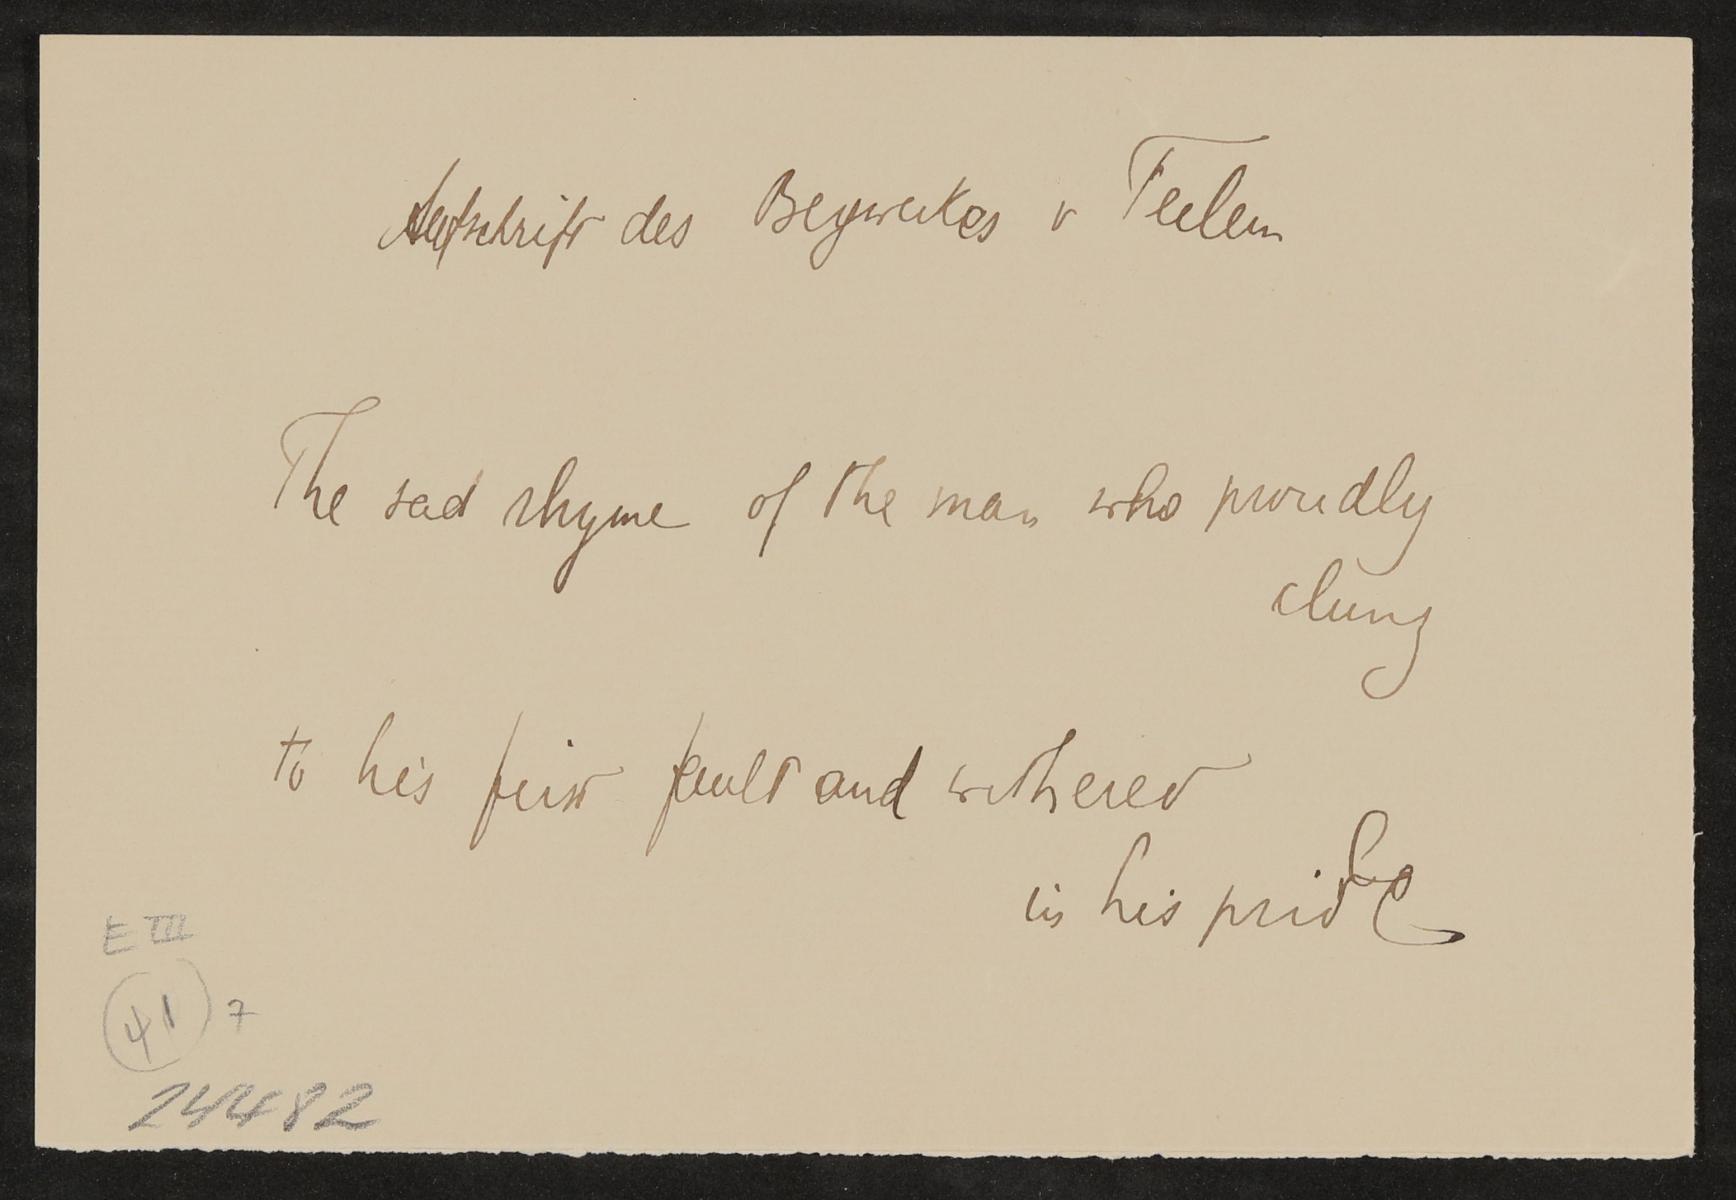 Aufschrift des Bergwerkes v Teelem
The sad rhyme of the man who proudly
clung
to his first fault and withered
in his pride
E III
41 7
24482